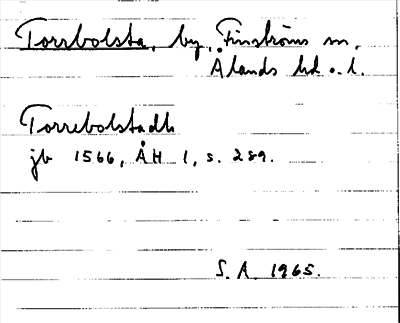 Torrbolsta, by, Finströms sn,
Ålands hd o. l.
Torrebolstadh
jb 1566, ÅH 1, s. 289.
S. A. 1965.